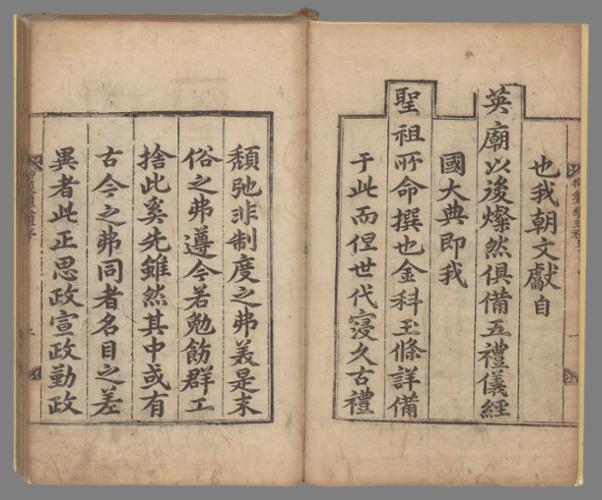 也我朝文獻自
英廟以後燦然俱備五禮儀經
國大典即我
聖祖所命撰也金科玉條詳備
于此而但世代寖久古禮
頹弛非制度之弗美是末
俗之弗遵今若勉飭群工
捨此奚先雖然其中或有
古今之弗同者名目之差
異者此正思政宣政勤政